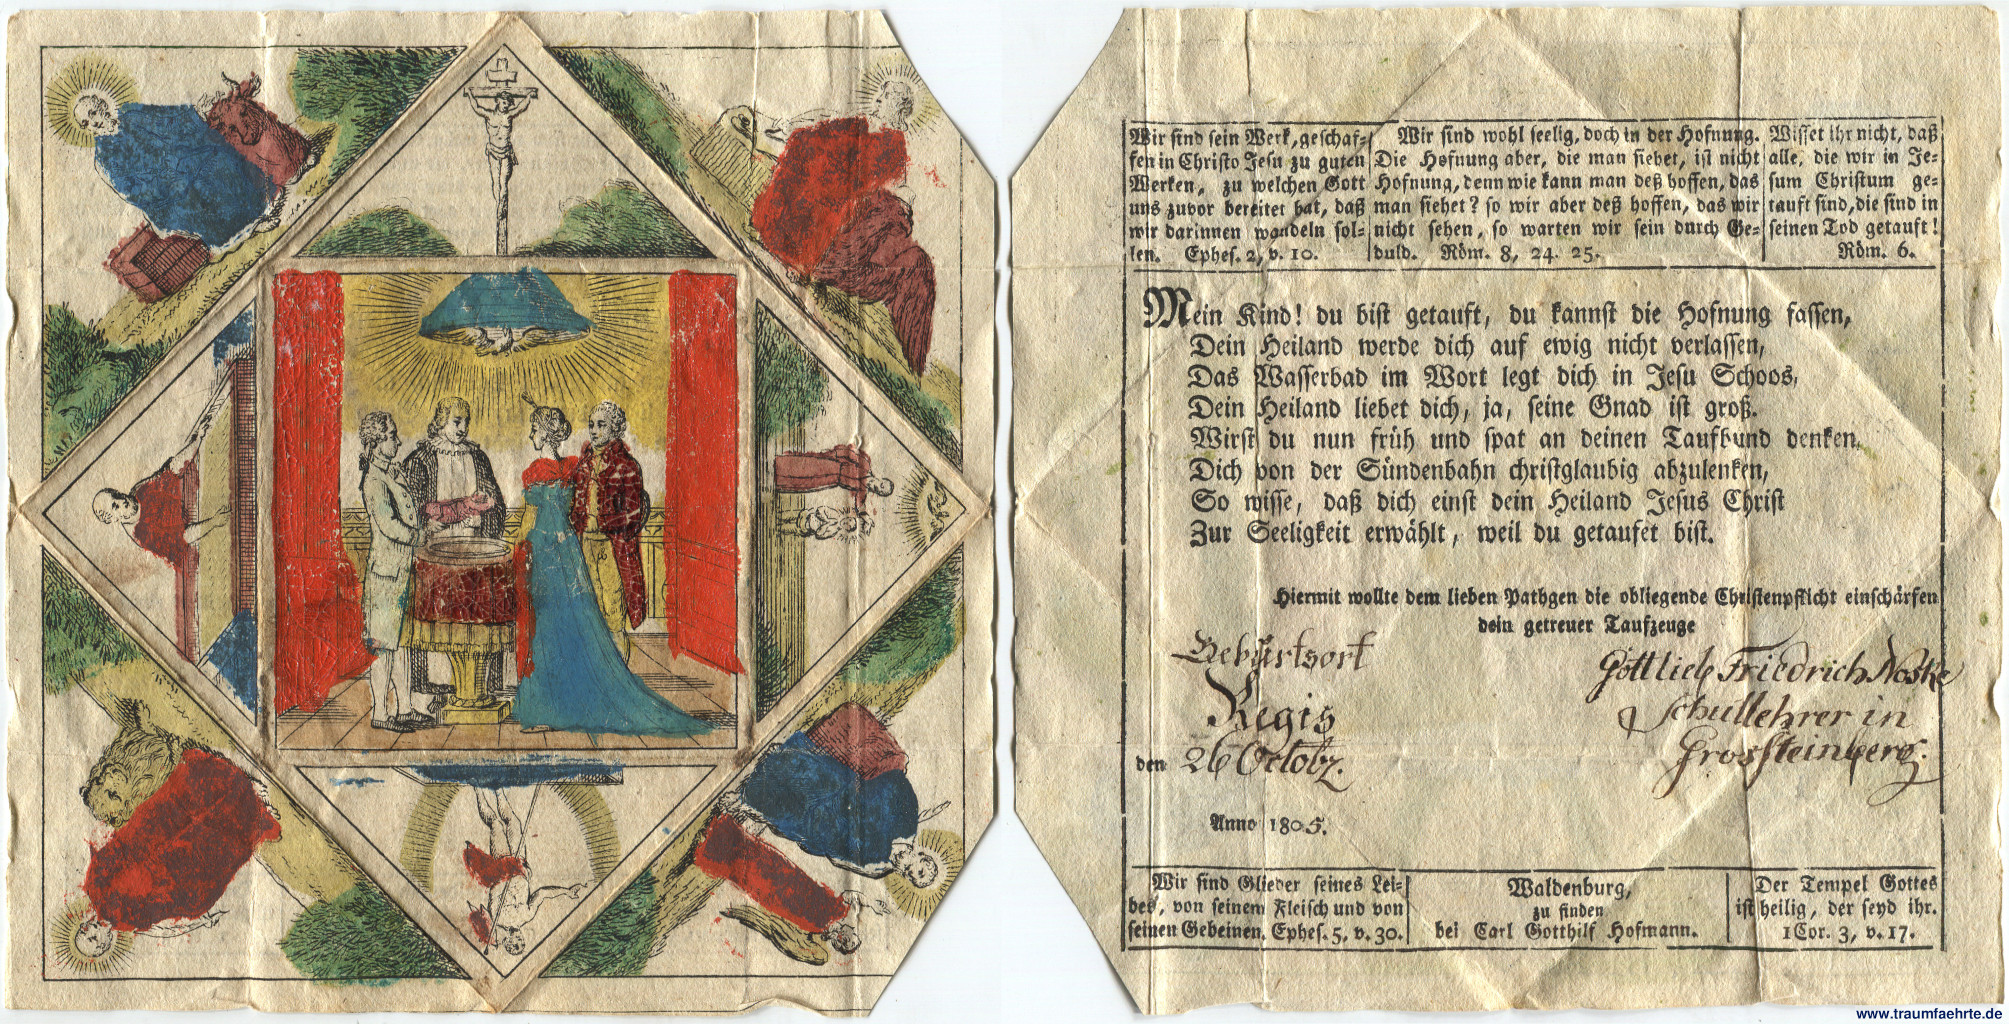 Wir sind sein Werk, geschaf-
fen in Christo Jesu zu guten
Werken, zu welchen Gott
uns zuvor bereitet hat, daß
wir darinnen wandeln sol-
len. Ephes. 2, v. 10.
Wir sind wohl seelig, doch in der Hofnung.
Die Hofnung aber, die man siehet, ist nicht
Hofnung, denn wie kann man deß hoffen, das
man siehet? so wir aber deß hoffen, das wir
nicht sehen, so warten wir sein durch Ge-
duld. Röm. 8, 24. 25.
Wisset ihr nicht, daß
alle, die wir in Je-
sum Christum ge-
tauft sind, die sind in
seinen Tod getauft!
Röm. 6.
Mein Kind! du bist getauft, du kannst die Hofnung fassen,
Dein Heiland werde dich auf ewig nicht verlassen,
Das Wasserbad im Wort legt dich in Jesu Schoos,
Dein Heiland liebet dich, ja, seine Gnad ist groß.
Wirst du nun früh und spat an deinen Taufbund denken,
Dich von der Sündenbahn christglaubig abzulenken,
So wisse, daß dich einst dein Heiland Jesus Christ
Zur Seeligkeit erwählt, weil du getaufet bist.
Hiermit wollte dem lieben Pathgen die obliegende Christenpflicht einschärfen
dein getreuer Taufzeuge
Geburtsort
Regis
den 26 Octobr.
Anno 1805.
Gottlieb Friedrich Noske
Schullehrer in
Grossteinberg.
Wir sind Glieder seines Lei-
bes, von seinem Fleisch und von
seinen Gebeinen. Ephes. 5, v. 30.
Waldenburg,
zu finden
bei Carl Gotthilf Hofmann.
Der Tempel Gottes
ist heilig, der seyd ihr.
1 Cor. 3, v. 17.
www.traumfaehrte.de